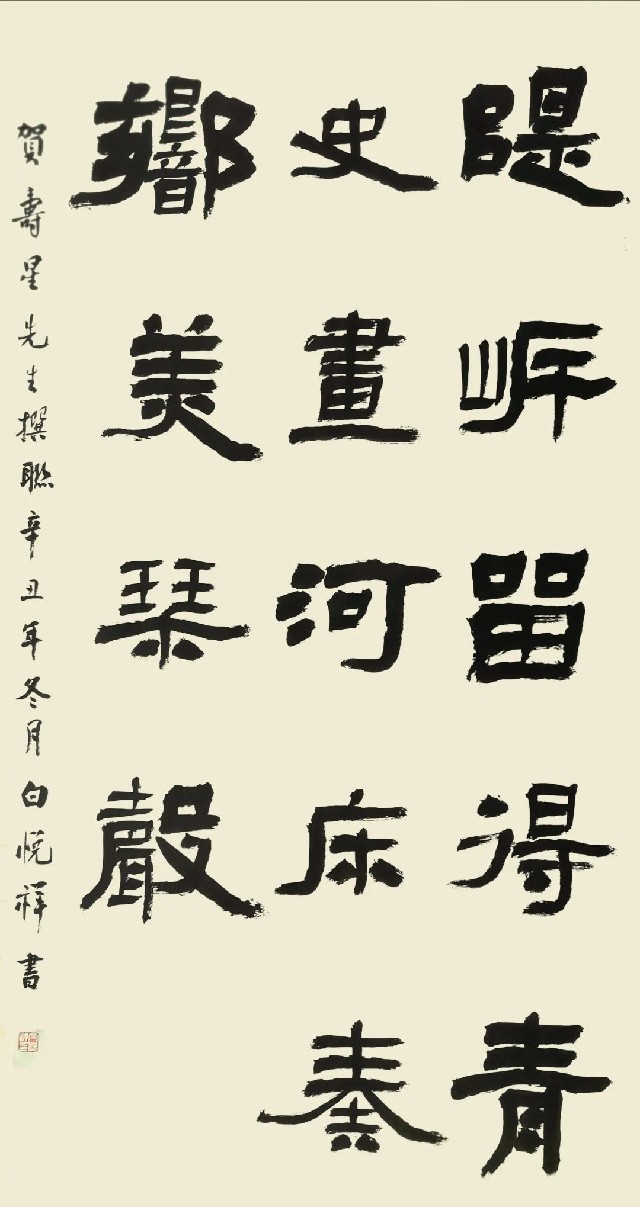 隄岸留得青
史畫河床奏
響美琴聲
賀壽星先生撰聯辛丑年冬月白悅祥書